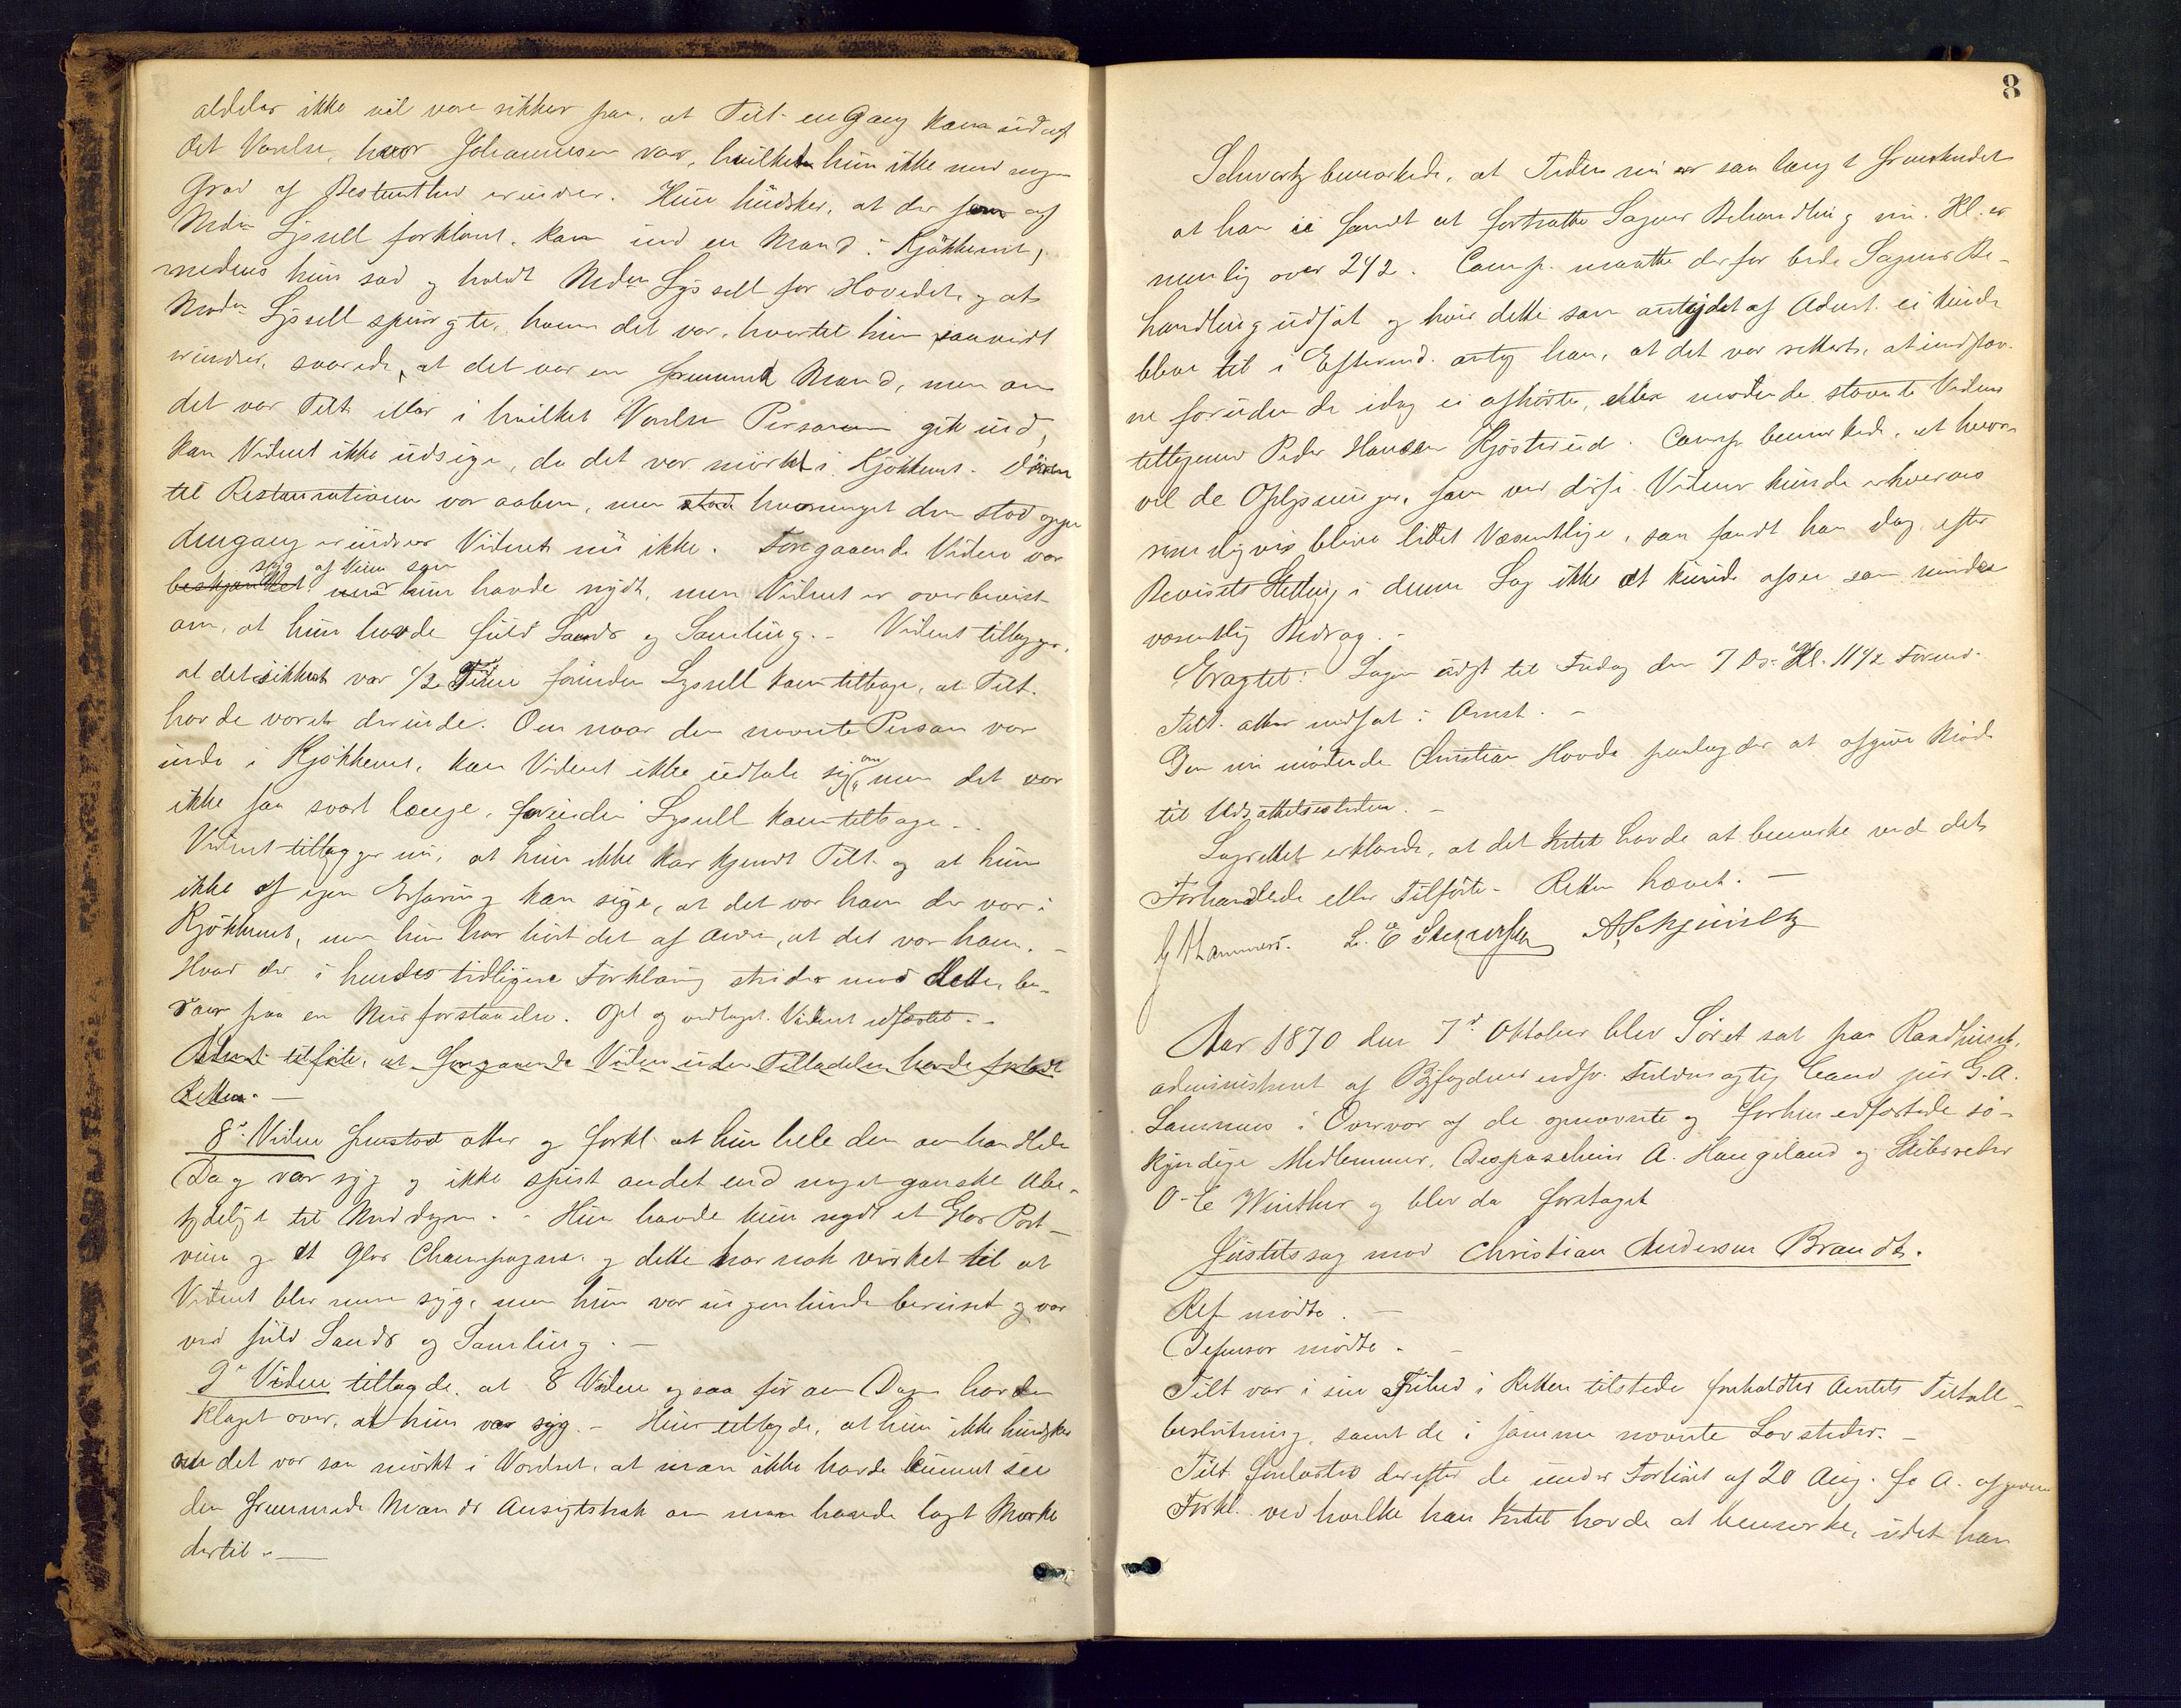 aldeles ikke vil være sikker paa, at Tilt. engang kom ind af
det Værelse, hvor Johannesen var, hvilket hun ikke med nogen
Grad af Bestemthed erindrer. Hun husker, at der som af
Mdm Lysell forklaret, kom ind en Mand i Kjøkkenet,
medens hun sad og holdt Mdm Lysell for Hovedet, og at
Mdm Lysell spurgte, hvem det var, hvortil hun saavidt
erindres, svarede, at det var en fremmed Mand, men om
det var Tilt. eller i hvilket Værelse Personen gik ind,
kan Vidnet ikke udsige, da det var mørkt i Kjøkkenet. Døren
til Restaurationen var aaben, men stod hvormeget den stod oppe
dengang erindrer Vidnet nu ikke. Foregaaende Vidne var
syg af Vin som
beskjænket hun havde nydt, men Vidnet er overbevist
om, at hun havde fuld Sands og Samling. – Vidnet tillægger,
at det sikkert var 1/2 Time forinden Lysell kom tilbage, at Tilt.
havde været derinde. Om naar den nævnte Person var
inde i Kjøkkenet, kan Vidnet ikke udtale sig om, men det var
ikke saa svært længe, forinden Lysell kom tilbage. –
Vidnet tillægger nu, at hun ikke har kjendt Tilt. og at hun
ikke af egen Erfaring kan sige, at det var ham der var i
Kjøkkenet, men hun har hørt det af Andre, at det var ham. –
Hvad der i hendes tidligere Forklaring strider mod dette, be-
roer paa en Misforstaaelse. Opl. og vedtaget. Vidnet edfæstet. –
Actor tilførte, at foregaaende Vidne uden Tilladelse havde forladt
Retten. –
8de Vidne fremstod atter og forkl. at hun hele den omhandlede
Dag var syg og ikke spist andet end noget ganske Ube-
tydeligt til Middagen. – Hun havde kun nydt et Glas Port-
viin og et Glas Champagne og dette har nok virket til at
Vidnet blev mere syg, men hun var ingenlunde beruset og var
ved fuld Sands og Samling. –
9de Vidne tillagde, at 8 Vidne ogsaa før om Dagen havde
klaget over, at hun var syg. – Hun tillagde, at hun ikke husker
om det var saa mørkt i Værelset, at man ikke havde kunnet see
den fremmede Mands Ansigtstræk om man havde lagt Mærke
dertil. –
8
Schwartz bemærkede, at Tiden nu er saa langt fremskredet
at han ei fandt at fortsætte Sagens Behandling nu. Kl. er
nemlig over 2 1/2. Comp. maatte derfor bede Sagens Be-
handling udsat og hvis dette som antydet af Admst. ei kunde
blive til i Eftermd. antog han, at det var rettest, at indstæv-
ne foruden de idag ei afhørte, eller mødende stævnte Vidner
tillige Peder Hansen Kjøstrud. Comp. bemærkede, at hvor-
vel de Oplysninger, som ved disse Vidner kunde erhverves
rimeligvis bliver lidet Væsentlige, saa fandt han dog, efter
Bevisets Stilling i denne Sag ikke at kunde afsee som mindre
væsentlig Bidrag. –
Eragtet: Sagen udsat til Fredag den 7 Ds. Kl. 11 1/2 Formd.
Tilt. atter indsat i Arrest. –
Den nu mødende Christian Hovde paalægges at afgive Møde
til Udsættelsestiden. –
Lagrettet erklærede, at det Intet havde at bemærke ved det
Forhandlede eller Tilførte. – Retten hævet. –
Aar 1870 den 7de Oktober blev Søret sat paa Raadhuset,
administreret af Byfogdens edsv. Fuldmægtig Cand. jur. G. A.
Lammers i Overvær af de opnævnte og forhen edfæstede sø-
kyndige Medlemmer, Despascheur A. Haugeland og Skibsreder
O. C. Winther og blev da foretaget
Justitssag mod Christian Andersen Brandt.
Ref. mødte. –
Defensor mødte. –
Tilt. var i sin Frihed i Retten tilstede foreholdtes Amtets Tiltale-
beslutning, samt de i samme nævnte Lovsteder. –
Tilt. forelæstes derefter de under Forhøret af 20 Aug. f. A. afgivne
Forkl. ved hvilke han Intet havde at bemærke, idet han